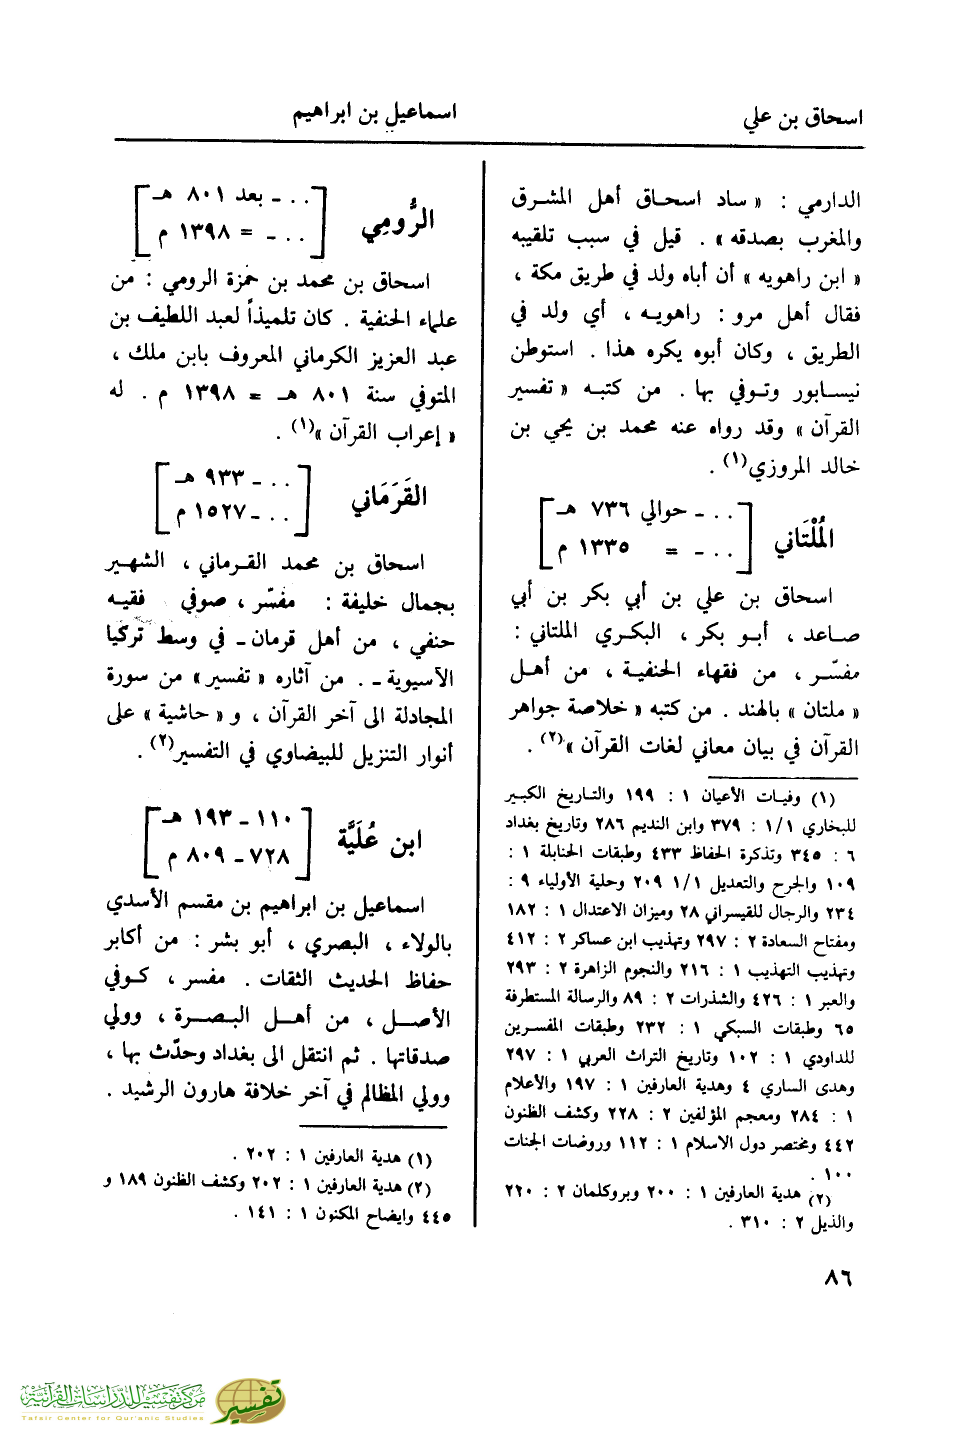 اسحاق بن علي
اسماعيل بن ابراهيم
الدارمي : « ساد اسحاق أهل المشرق
والمغرب بصدقه » . قيل في سبب تلقيبه
« ابن راهويه » أن أباه ولد في طريق مكة ،
فقال أهل مرو : راهويه ، أي ولد في
الطريق ، وكان أبوه يكره هذا . استوطن
نيسابور وتوفي بها . من كتبه « تفسير
القرآن » وقد رواه عنه محمد بن يحي بن
خالد المروزي(١) .
المُلْتَاني
[ . . . ـ حوالي ٧٣٦ هـ
. . . ـ = ١٣٣٥ م ]
اسحاق بن علي بن أبي بكر بن أبي
صاعد ، أبو بكر ، البكري الملتاني :
مفسّر ، من فقهاء الحنفية ، من أهل
« ملتان » بالهند . من كتبه « خلاصة جواهر
القرآن في بيان معاني لغات القرآن »(٢) .
(١) وفيات الأعيان ١ : ١٩٩ والتاريخ الكبير
للبخاري ١/١ : ٣٧٩ وابن النديم ٢٨٦ وتاريخ بغداد
٦ : ٣٤٥ وتذكرة الحفاظ ٤٣٣ وطبقات الحنابلة ١ :
١٠٩ والجرح والتعديل ١/١ ٢٠٩ وحلية الأولياء ٩ :
٢٣٤ والرجال للقيسراني ٢٨ وميزان الاعتدال ١ : ١٨٢
ومفتاح السعادة ٢ : ٢٩٧ وتهذيب ابن عساكر ٢ : ٤١٢
وتهذيب التهذيب ١ : ٢١٦ والنجوم الزاهرة ٢ : ٢٩٣
والعبر ١ : ٤٢٦ والشذرات ٢ : ٨٩ والرسالة المستطرفة
٦٥ وطبقات السبكي ١ : ٢٣٢ وطبقات المفسرين
للداودي ١ : ١٠٢ وتاريخ التراث العربي ١ : ٢٩٧
وهدى الساري ٤ وهدية العارفين ١ : ١٩٧ والأعلام
١ : ٢٨٤ ومعجم المؤلفين ٢ : ٢٢٨ وكشف الظنون
٤٤٢ ومختصر دول الاسلام ١ : ١١٢ وروضات الجنات
١٠٠ .
(٢) هدية العارفين ١ : ٢٠٠ وبروكلمان ٢ : ٢٢٠
والذيل ٢ : ٣١٠ .
الرُّومِي
[ . . . ـ بعد ٨٠١ هـ
. . . ـ = ١٣٩٨ م ]
اسحاق بن محمد بن حمزة الرومي : من
علماء الحنفية . كان تلميذاً لعبد اللطيف بن
عبد العزيز الكرماني المعروف بابن ملك ،
المتوفي سنة ٨٠١ هـ = ١٣٩٨ م . له
« إعراب القرآن »(١) .
القَرَمَاني
[ . . . ـ ٩٣٣ هـ
. . . ـ ١٥٢٧ م ]
اسحاق بن محمد القرماني ، الشهير
بجمال خليفة : مفسّر ، صوفي فقيه
حنفي ، من أهل قرمان ـ في وسط تركيا
الآسيوية ـ . من آثاره « تفسير » من سورة
المجادلة الى آخر القرآن ، و « حاشية » على
أنوار التنزيل للبيضاوي في التفسير(٢) .
ابن عُلَيَّة
[ ١١٠ ـ ١٩٣ هـ
٧٢٨ ـ ٨٠٩ م ]
اسماعيل بن ابراهيم بن مقسم الأسدي
بالولاء ، البصري ، أبو بشر : من أكابر
حفاظ الحديث الثقات . مفسر ، كوفي
الأصل ، من أهل البصرة ، وولي
صدقاتها . ثم انتقل الى بغداد وحدّث بها ،
وولي المظالم في آخر خلافة هارون الرشيد .
(١) هدية العارفين ١ : ٢٠٢ .
(٢) هدية العارفين ١ : ٢٠٢ وكشف الظنون ١٨٩ و
٤٤٥ وايضاح المكنون ١ : ١٤١ .
٨٦
مركز تفسير للدراسات القرآنية
Tafsir Center for Qur'anic Studies
تفسير